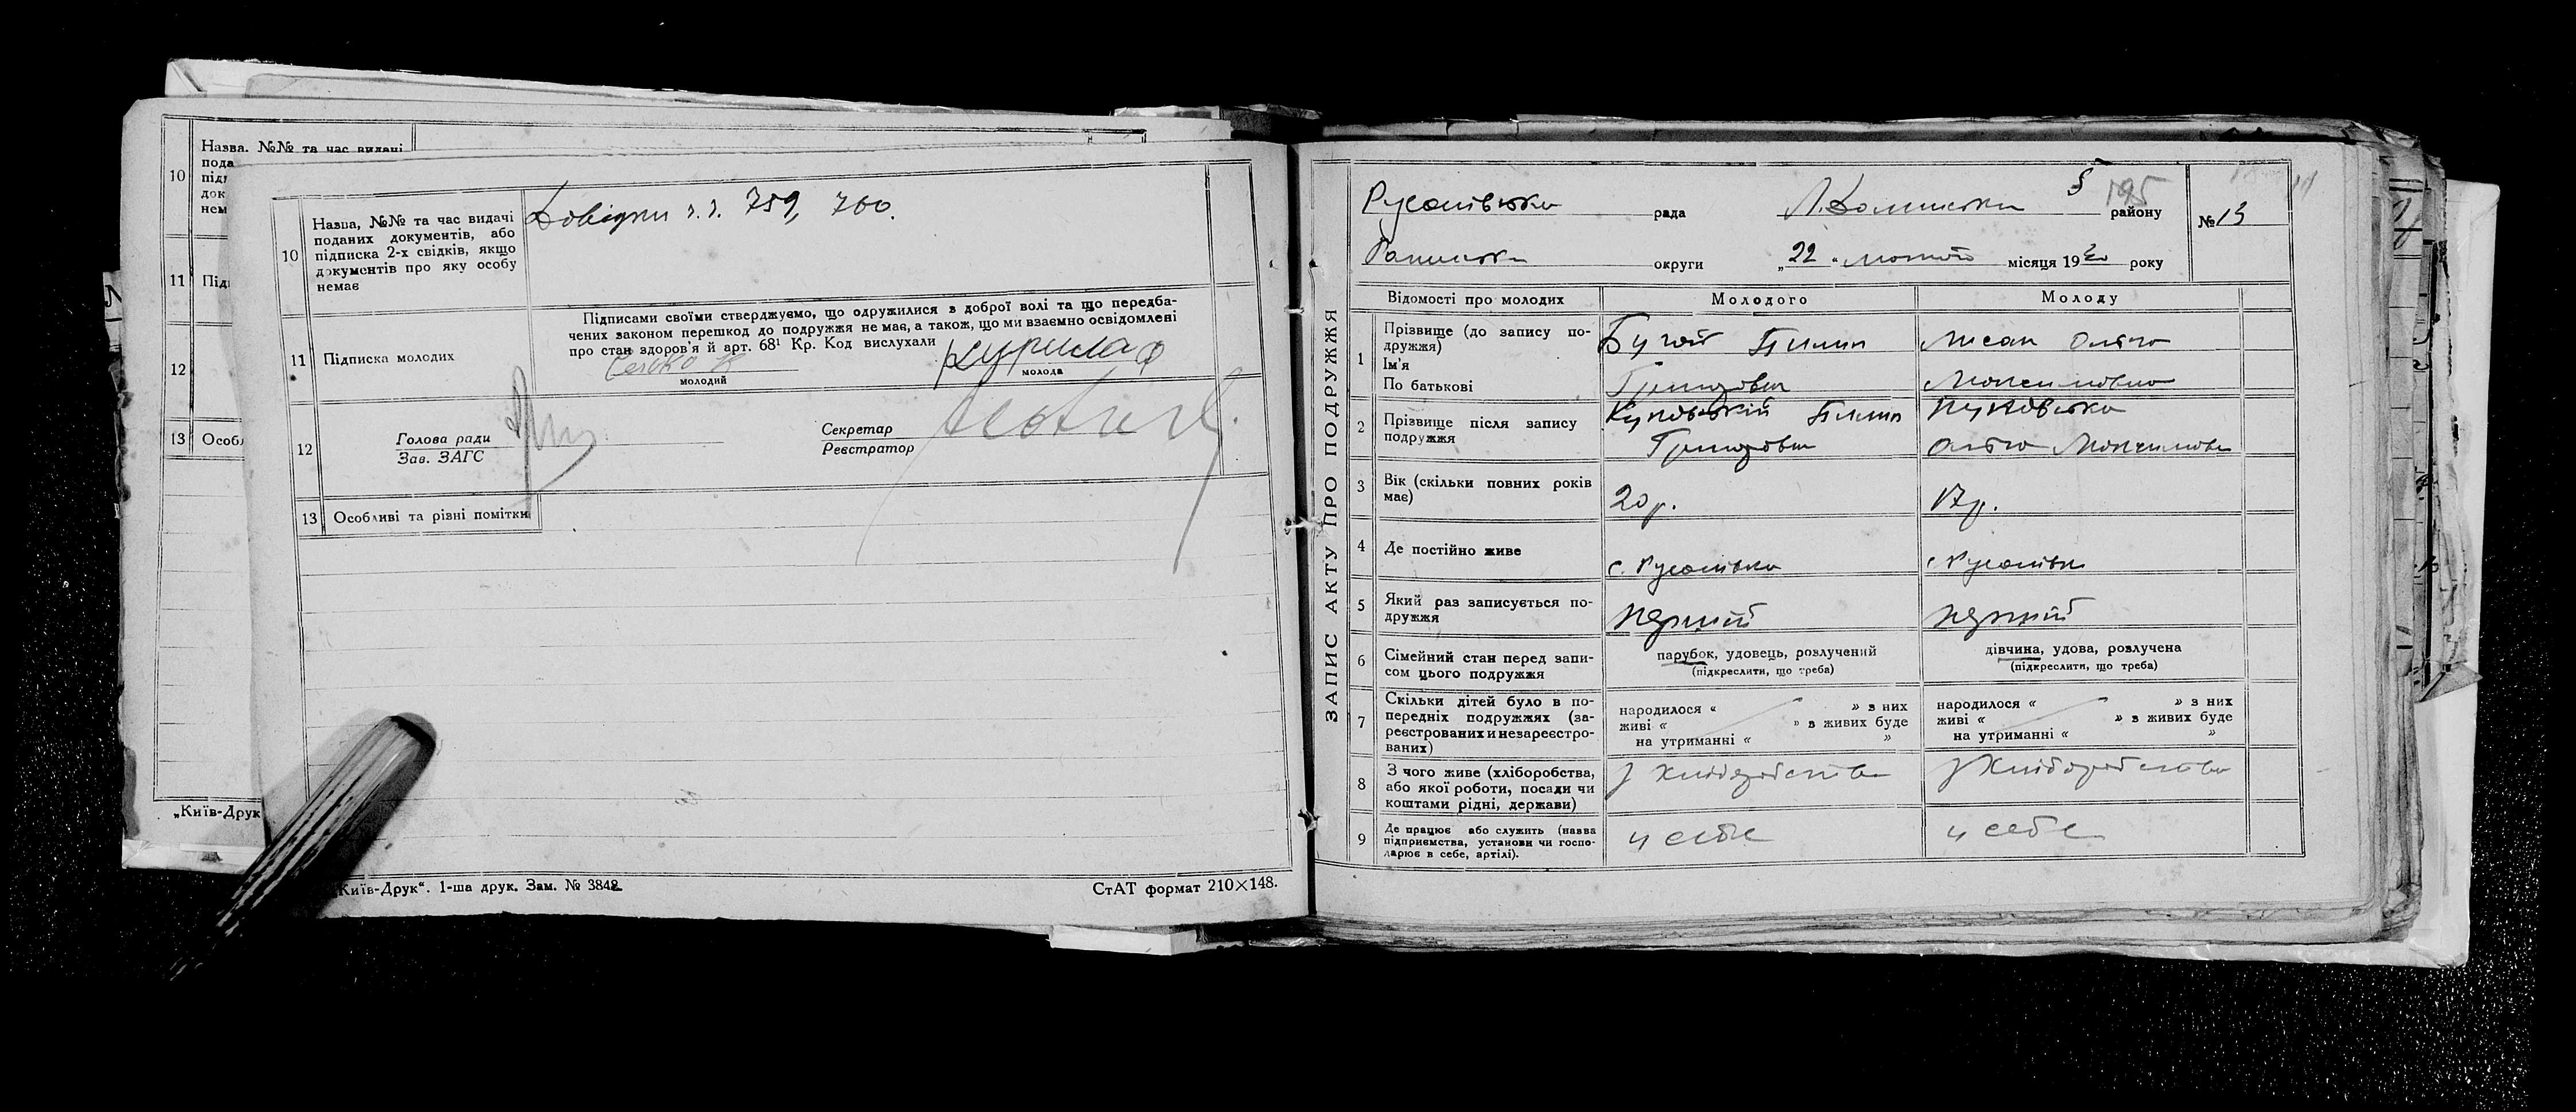 10
Назва. №№ та час видачі
пода
підп
док
нем
11 Під
12
13 Особл
„Київ-Друк
10
Назва, №№ та час видачі
поданих документів, або
підписка 2-х свідків, якщо
документів про яку особу
немає
Довідки з.з. 759, 760.
11 Підписка молодих
Підписами своїми стверджуємо, що одружилися з доброї волі та що передба-
чених законом перешкод до подружжя не має, а також, що ми взаємно освідомлені
про стан здоров'я й арт. 68¹ Кр. Код вислухали
молодий
Курила
молода
12
Голова ради
Зав. ЗАГС
Секретар
Реєстратор
13 Особливі та різні помітки
Київ-Друк“. 1-ша друк. Зам. № 3842
СтАТ формат 210×148.
ЗАПИС АКТУ ПРО ПОДРУЖЖЯ
195
Русанівська рада району
№ 13
округи „22“ лютого місяця 1930 року
Відомості про молодих
Молодого
Молоду
1
Прізвище (до запису по-
дружжя)
Ім'я
По батькові
Бугай Пилип
Григорович
Лисак Ольга
Максимовна
2
Прізвище після запису
подружжя
Пилип
Григорович
Ольга Максимовн
3
Вік (скільки повних років
має)
20 р.
17 р.
4 Де постійно живе
с. Русанівка
с. Русанівка
5
Який раз записується по-
дружжя
перший
перший
6
Сімейний стан перед запи-
сом цього подружжя
парубок, удовець, розлучений
(підкреслити, що треба)
дівчина, удова, розлучена
(підкреслити, що треба)
7
Скільки дітей було в по-
передніх подружжях (за-
реєстрованих и незареєстро-
ваних)
народилося « » з них
живі « » з живих буде
на утриманні « »
народилося « » з них
живі « » з живих буде
на утриманні « »
8
З чого живе (хліборобства,
або якої роботи, посади чи
коштами рідні, держави)
з хліборобства
з хліборобства
9
Де працює або служить (назва
підприємства, установи чи госпо-
дарює в себе, артілі).
у себе
у себе